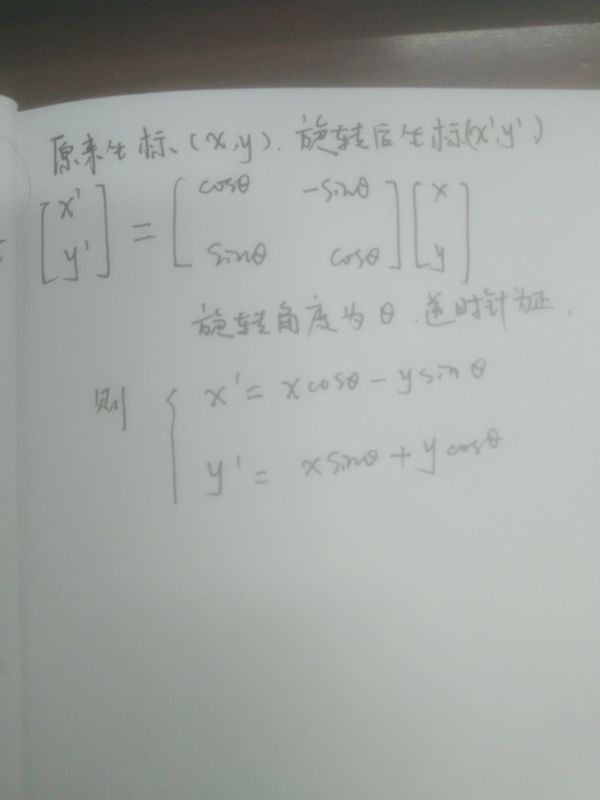 原来坐标、(x,y). 旋转后坐标(x',y')
[x' y'] = [cosθ -sinθ sinθ cosθ] [x y]
旋转角度为θ.逆时针为正.
则 { x' = xcosθ - ysinθ
y' = xsinθ + ycosθ